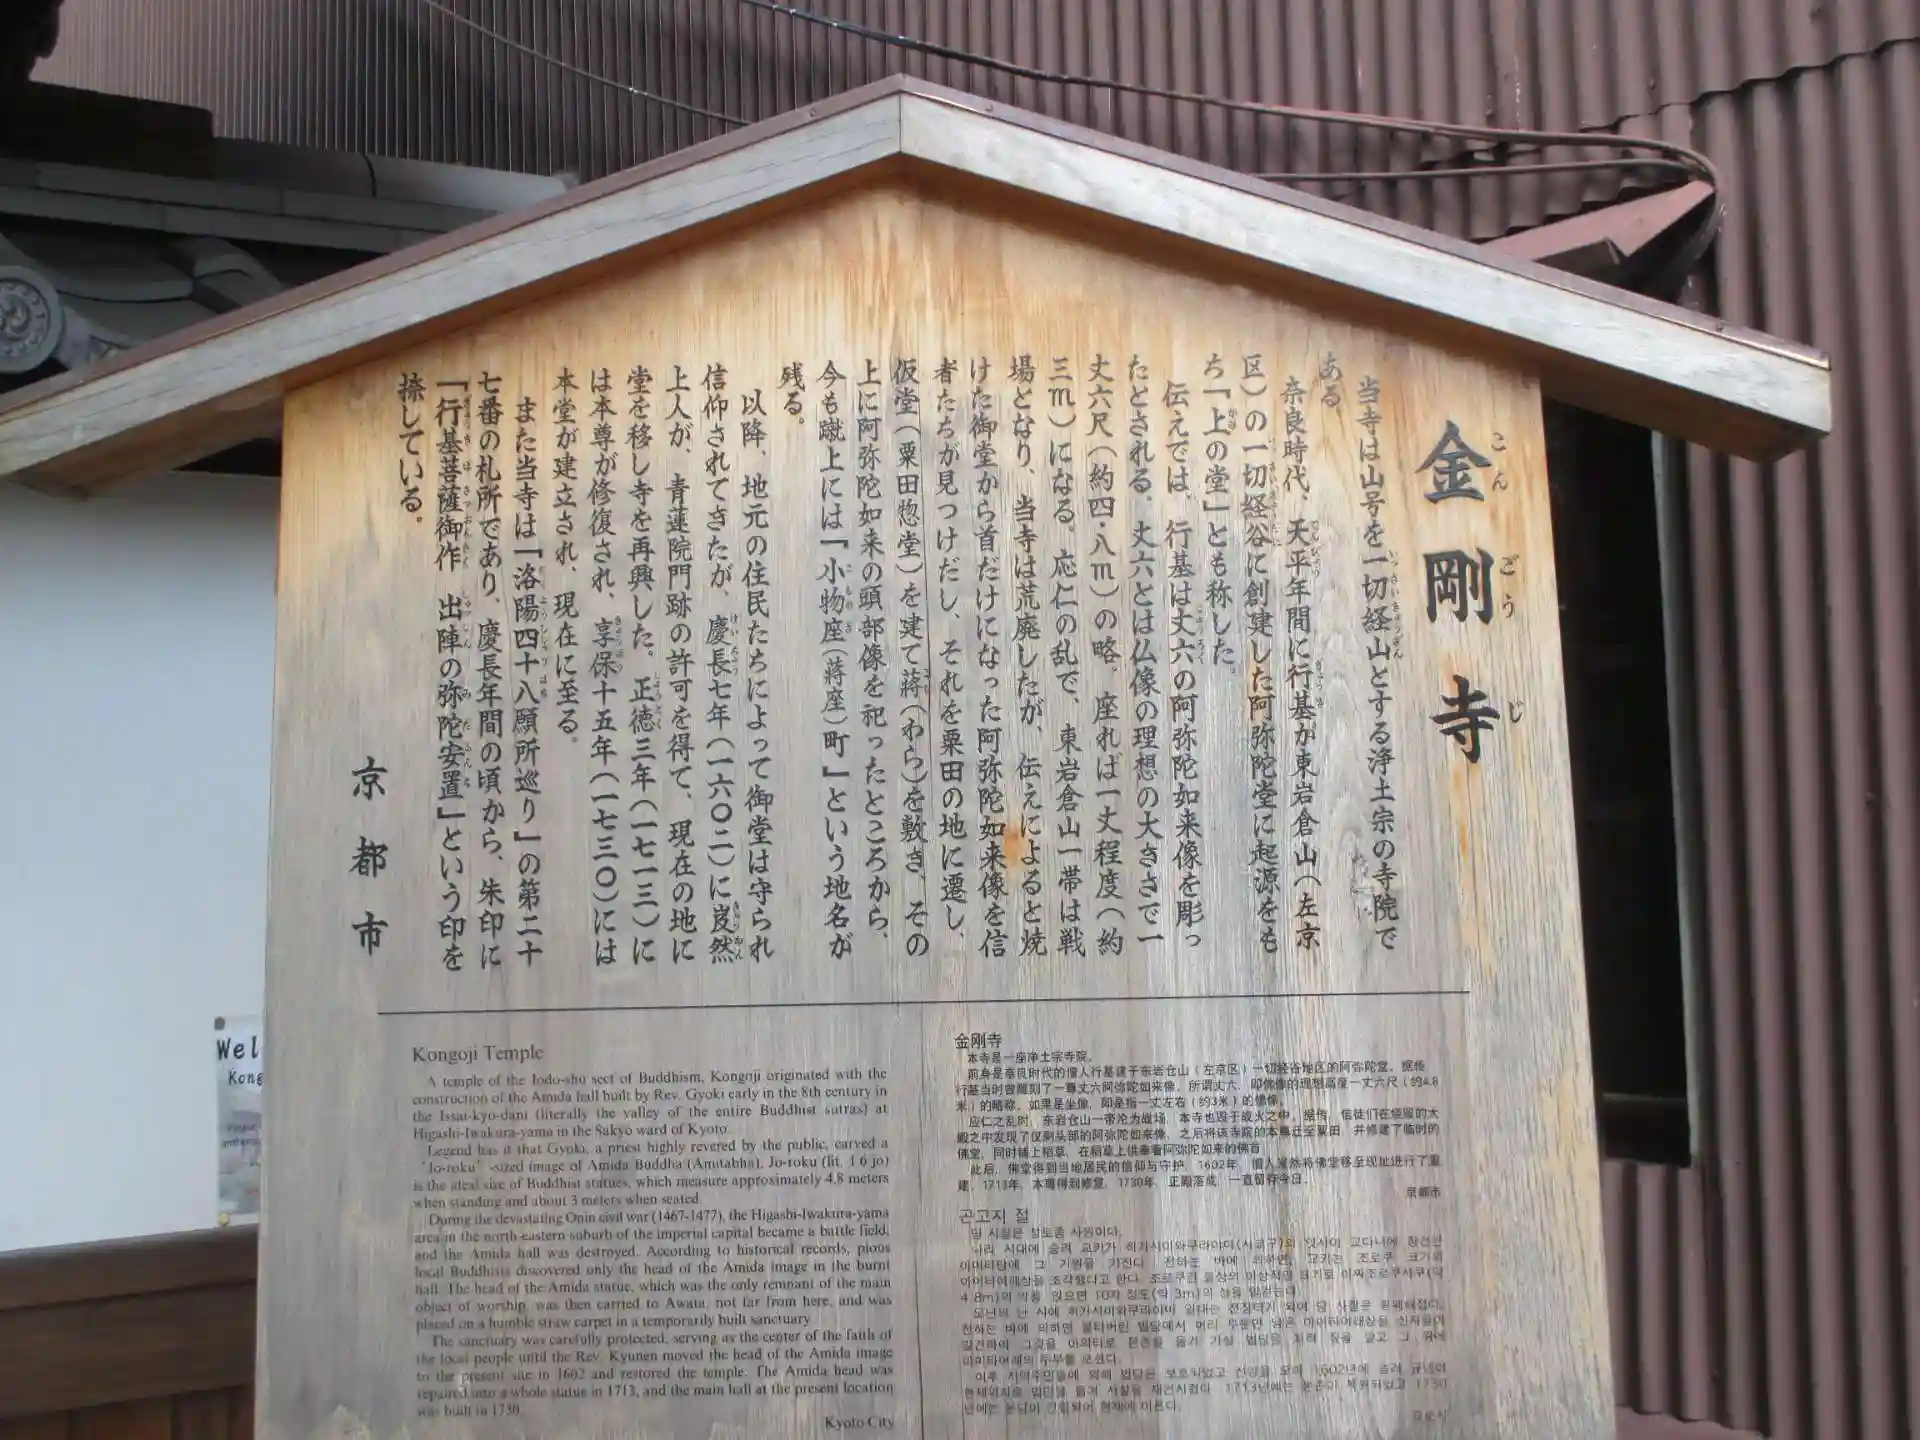 金剛寺
当寺は山号を一切経山とする浄土宗の寺院で
ある
奈良時代、天平年間に行基が東岩倉山(左京
区)の一切経谷に創建した阿弥陀堂に起源をも
ち「上の堂」とも称した。
伝えでは、行基は丈六の阿弥陀如来像を彫っ
たとされる。丈六とは仏像の理想の大きさで一
丈六尺(約四・八m)の略。座れば一丈程度(約
三m)になる。応仁の乱で、東岩倉山一帯は戦
場となり、当寺は荒廃したが、伝えによると焼
けた御堂から首だけになった阿弥陀如来像を信
者たちが見つけだし、それを粟田の地に遷し、
仮堂(粟田惣堂)を建て蒋(わら)を敷き、その
上に阿弥陀如来の頭部像を祀ったところから、
今も蹴上には「小物座(蒋座)町」という地名が
残る。
以降、地元の住民たちによって御堂は守られ
信仰されてきたが、慶長七年(一六〇二)に岌然
上人が、青蓮院門跡の許可を得て、現在の地に
堂を移し寺を再興した。正徳三年(一七一三)に
は本尊が修復され、享保十五年(一七三〇)には
本堂が建立され、現在に至る。
また当寺は「洛陽四十八願所巡り」の第二十
七番の札所であり、慶長年間の頃から、朱印に
「行基菩薩御作 出陣の弥陀安置」という印を
捺している。
京都市
Kongoji Temple
A temple of the Jodo-shu sect of Buddhism, Kongoji originated with the
construction of the Amida hall built by Rev. Gyoki early in the 8th century in
the Issai-kyo-dani (literally the valley of the entire Buddhist sutras) at
Higashi-Iwakura-yama in the Sakyo ward of Kyoto.
Legend has it that Gyoki, a priest highly revered by the public, carved a
'Jo-roku'-sized image of Amida Buddha (Amitabha). Jo-roku (lit. 1.6 jo)
is the ideal size of Buddhist statues, which measure approximately 4.8 meters
when standing and about 3 meters when seated.
During the devastating Onin civil war (1467-1477), the Higashi-Iwakura-yama
area in the north-eastern suburb of the imperial capital became a battle field,
and the Amida hall was destroyed. According to historical records, pious
local Buddhists discovered only the head of the Amida image in the burnt
hall. The head of the Amida statue, which was the only remnant of the main
object of worship, was then carried to Awata, not far from here, and was
placed on a humble straw carpet in a temporarily built sanctuary.
The sanctuary was carefully protected, serving as the center of the faith of
the local people until the Rev. Kyunen moved the head of the Amida image
to the present site in 1602 and restored the temple. The Amida head was
repaired into a whole statue in 1713, and the main hall at the present location
was built in 1730.
Kyoto City
金刚寺
本寺是一座净土宗寺院。
前身是奈良时代的僧人行基建于东岩仓山（左京区）一切经谷地区的阿弥陀堂。据传
行基当时曾雕刻了一尊丈六阿弥陀如来像。所谓丈六，即佛像的理想高度一丈六尺（约4.8
米）的略称，如果是坐像，即是指一丈左右（约3米）的佛像。
应仁之乱时，东岩仓山一带沦为战场，本寺也毁于战火之中。据传，信徒们在烧毁的大
殿之中发现了仅剩头部的阿弥陀如来像，之后将该寺院的本尊迁至粟田，并修建了临时的
佛堂，同时铺上稻草，在稻草上供奉着阿弥陀如来的佛首
此后，佛堂得到当地居民的信仰与守护，1602年，僧人岌然将佛堂移至现址进行了重
建。1713年，本尊得到修复，1730年，正殿落成，一直留存今日。
京都市
곤고지 절
당 사찰은 정토종 사원이다.
Wel
Kong